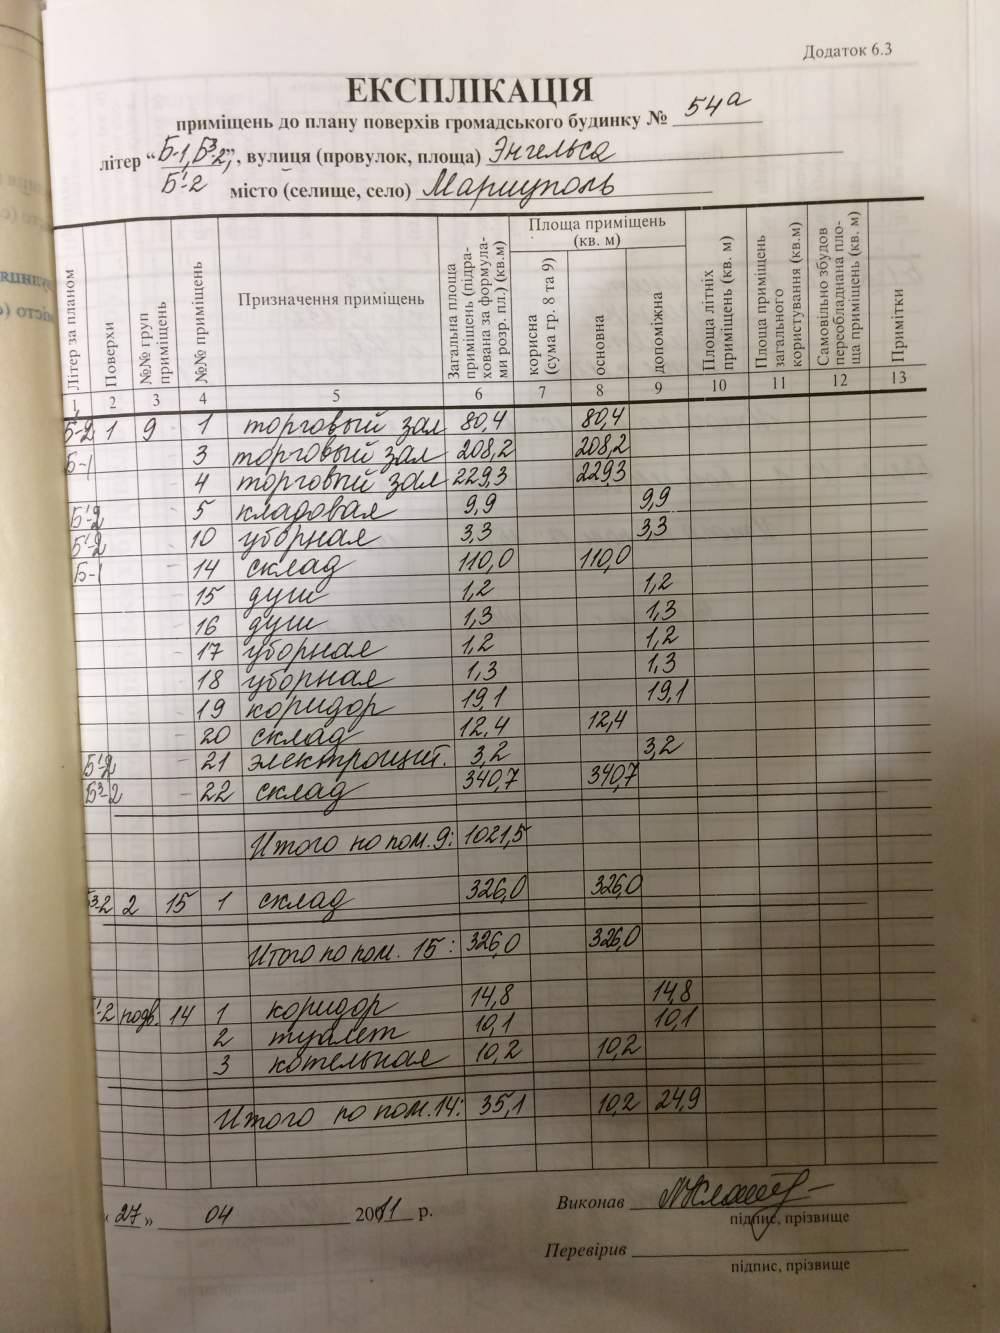 Додаток 6.3
ЕКСПЛІКАЦІЯ
приміщень до плану поверхів громадського будинку № 54а
літер “Б-1, Б³-2,”, вулиця (провулок, площа) Энгельса
Б¹-2 місто (селище, село) Мариуполь
Літер за планом
Поверхи
№№ груп приміщень
№№ приміщень
Призначення приміщень
Загальна площа приміщень (підрахована за формулами розр. пл.) (кв.м)
Площа приміщень (кв. м)
корисна (сума гр. 8 та 9)
основна
допоміжна
Площа літніх приміщень (кв. м)
Площа приміщень загального користування (кв.м)
Самовільно збудов переобладнана площа приміщень (кв. м)
Примітки
1 2 3 4 5 6 7 8 9 10 11 12 13
Б-2 1 9 1 торговый зал 80,4 80,4
Б-1 3 торговый зал 208,2 208,2
4 торговый зал 229,3 229,3
Б¹-2 5 кладовая 9,9 9,9
Б¹-2 10 уборная 3,3 3,3
Б-1 14 склад 110,0 110,0
15 душ 1,2 1,2
16 душ 1,3 1,3
17 уборная 1,2 1,2
18 уборная 1,3 1,3
19 коридор 19,1 19,1
20 склад 12,4 12,4
Б¹-2 21 электрощит. 3,2 3,2
Б³-2 22 склад 340,7 340,7
Итого по пом. 9: 1021,5
Б³-2 2 15 1 склад 326,0 326,0
Итого по пом. 15: 326,0 326,0
¹-2 подв. 14 1 коридор 14,8 14,8
2 туалет 10,1 10,1
3 котельная 10,2 10,2
Итого по пом. 14: 35,1 10,2 24,9
“27” 04 2011 р.
Виконав
підпис, прізвище
Перевірив
підпис, прізвище